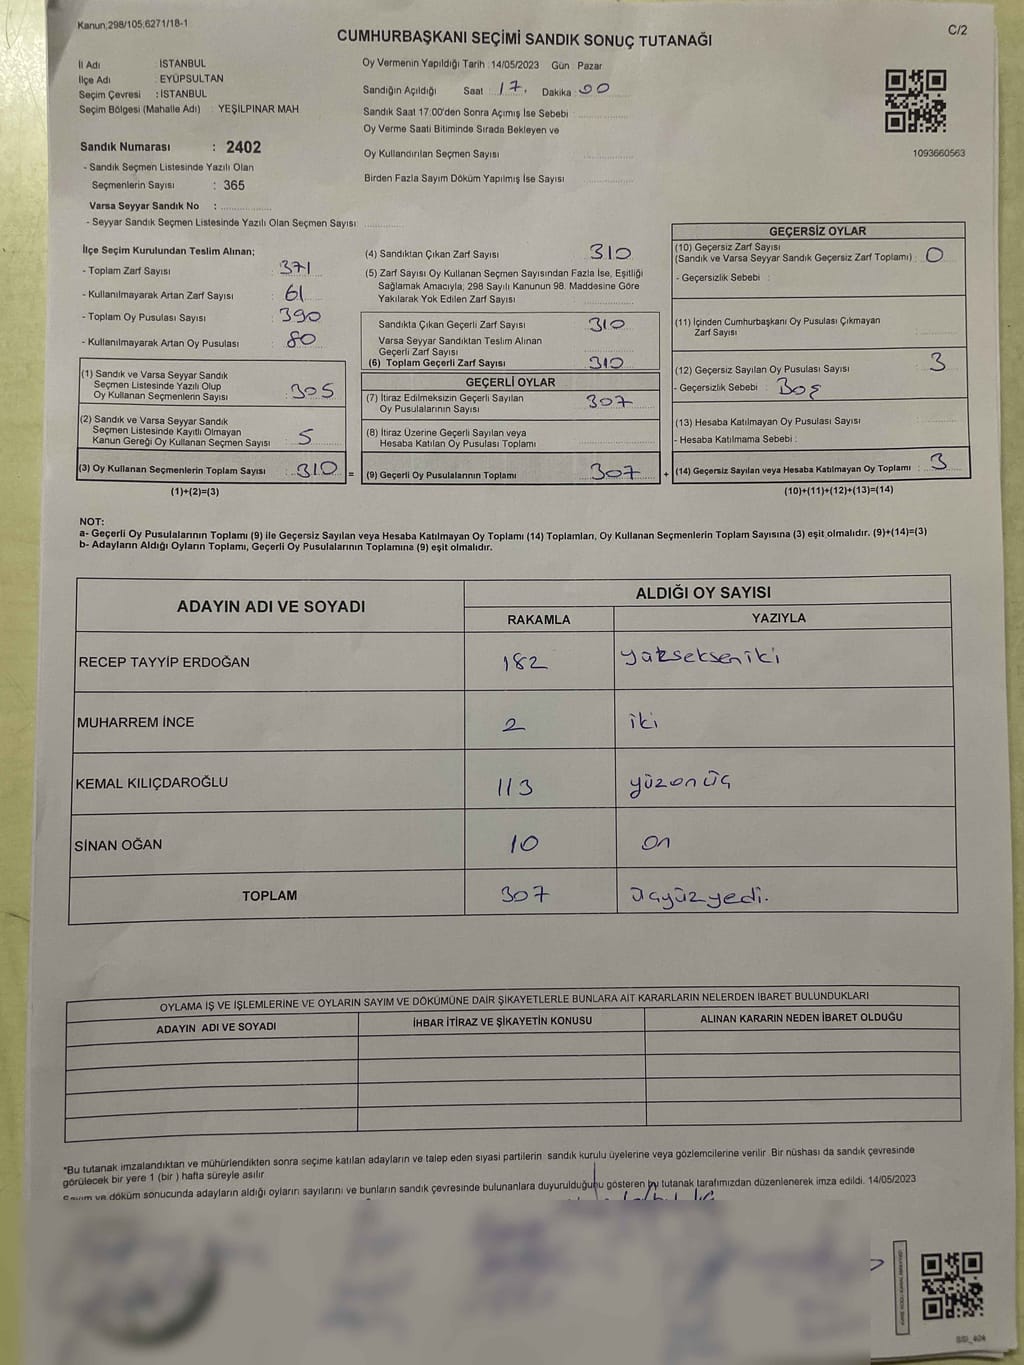 Kanun;298/105;6271/18-1
C/2
CUMHURBAŞKANI SEÇİMİ SANDIK SONUÇ TUTANAĞI
İl Adı : İSTANBUL
İlçe Adı : EYÜPSULTAN
Seçim Çevresi : İSTANBUL
Seçim Bölgesi (Mahalle Adı) : YEŞİLPINAR MAH
Sandık Numarası : 2402
- Sandık Seçmen Listesinde Yazılı Olan
Seçmenlerin Sayısı : 365
Varsa Seyyar Sandık No :
- Seyyar Sandık Seçmen Listesinde Yazılı Olan Seçmen Sayısı
Oy Vermenin Yapıldığı Tarih : 14/05/2023 Gün Pazar
Sandığın Açıldığı Saat : 17. Dakika : 00
Sandık Saat 17:00'den Sonra Açımış İse Sebebi
Oy Verme Saati Bitiminde Sırada Bekleyen ve
Oy Kullandırılan Seçmen Sayısı
Birden Fazla Sayım Döküm Yapılmış İse Sayısı
1093660563
İlçe Seçim Kurulundan Teslim Alınan;
- Toplam Zarf Sayısı : 371
- Kullanılmayarak Artan Zarf Sayısı : 61
- Toplam Oy Pusulası Sayısı : 390
- Kullanılmayarak Artan Oy Pusulası : 80
(1) Sandık ve Varsa Seyyar Sandık
Seçmen Listesinde Yazılı Olup
Oy Kullanan Seçmenlerin Sayısı : 305
(2) Sandık ve Varsa Seyyar Sandık
Seçmen Listesinde Kayıtlı Olmayan
Kanun Gereği Oy Kullanan Seçmen Sayısı : 5
(3) Oy Kullanan Seçmenlerin Toplam Sayısı : 310 =
(1)+(2)=(3)
(4) Sandıktan Çıkan Zarf Sayısı 310
(5) Zarf Sayısı Oy Kullanan Seçmen Sayısından Fazla İse, Eşitliği
Sağlamak Amacıyla; 298 Sayılı Kanunun 98. Maddesine Göre
Yakılarak Yok Edilen Zarf Sayısı
Sandıkta Çıkan Geçerli Zarf Sayısı 310
Varsa Seyyar Sandıktan Teslim Alınan
Geçerli Zarf Sayısı
(6) Toplam Geçerli Zarf Sayısı 310
GEÇERLİ OYLAR
(7) İtiraz Edilmeksizin Geçerli Sayılan
Oy Pusulalarının Sayısı 307
(8) İtiraz Üzerine Geçerli Sayılan veya
Hesaba Katılan Oy Pusulası Toplamı
(9) Geçerli Oy Pusulalarının Toplamı 307 +
GEÇERSİZ OYLAR
(10) Geçersiz Zarf Sayısı
(Sandık ve Varsa Seyyar Sandık Geçersiz Zarf Toplamı) : 0
- Geçersizlik Sebebi :
(11) İçinden Cumhurbaşkanı Oy Pusulası Çıkmayan
Zarf Sayısı
(12) Geçersiz Sayılan Oy Pusulası Sayısı 3
- Geçersizlik Sebebi : Boş
(13) Hesaba Katılmayan Oy Pusulası Sayısı
- Hesaba Katılmama Sebebi :
(14) Geçersiz Sayılan veya Hesaba Katılmayan Oy Toplamı : 3
(10)+(11)+(12)+(13)=(14)
NOT:
a- Geçerli Oy Pusulalarının Toplamı (9) ile Geçersiz Sayılan veya Hesaba Katılmayan Oy Toplamı (14) Toplamları, Oy Kullanan Seçmenlerin Toplam Sayısına (3) eşit olmalıdır. (9)+(14)=(3)
b- Adayların Aldığı Oyların Toplamı, Geçerli Oy Pusulalarının Toplamına (9) eşit olmalıdır.
ADAYIN ADI VE SOYADI ALDIĞI OY SAYISI
RAKAMLA YAZIYLA
RECEP TAYYİP ERDOĞAN 182 yüzseksen iki
MUHARREM İNCE 2 iki
KEMAL KILIÇDAROĞLU 113 yüzonüç
SİNAN OĞAN 10 on
TOPLAM 307 üçyüzyedi.
OYLAMA İŞ VE İŞLEMLERİNE VE OYLARIN SAYIM VE DÖKÜMÜNE DAİR ŞİKAYETLERLE BUNLARA AİT KARARLARIN NELERDEN İBARET BULUNDUKLARI
ADAYIN ADI VE SOYADI İHBAR İTİRAZ VE ŞİKAYETİN KONUSU ALINAN KARARIN NEDEN İBARET OLDUĞU
*Bu tutanak imzalandıktan ve mühürlendikten sonra seçime katılan adayların ve talep eden siyasi partilerin sandık kurulu üyelerine veya gözlemcilerine verilir. Bir nüshası da sandık çevresinde
görülecek bir yere 1 (bir) hafta süreyle asılır
Sayım ve döküm sonucunda adayların aldığı oyların sayılarını ve bunların sandık çevresinde bulunanlara duyurulduğunu gösteren bu tutanak tarafımızdan düzenlenerek imza edildi. 14/05/2023